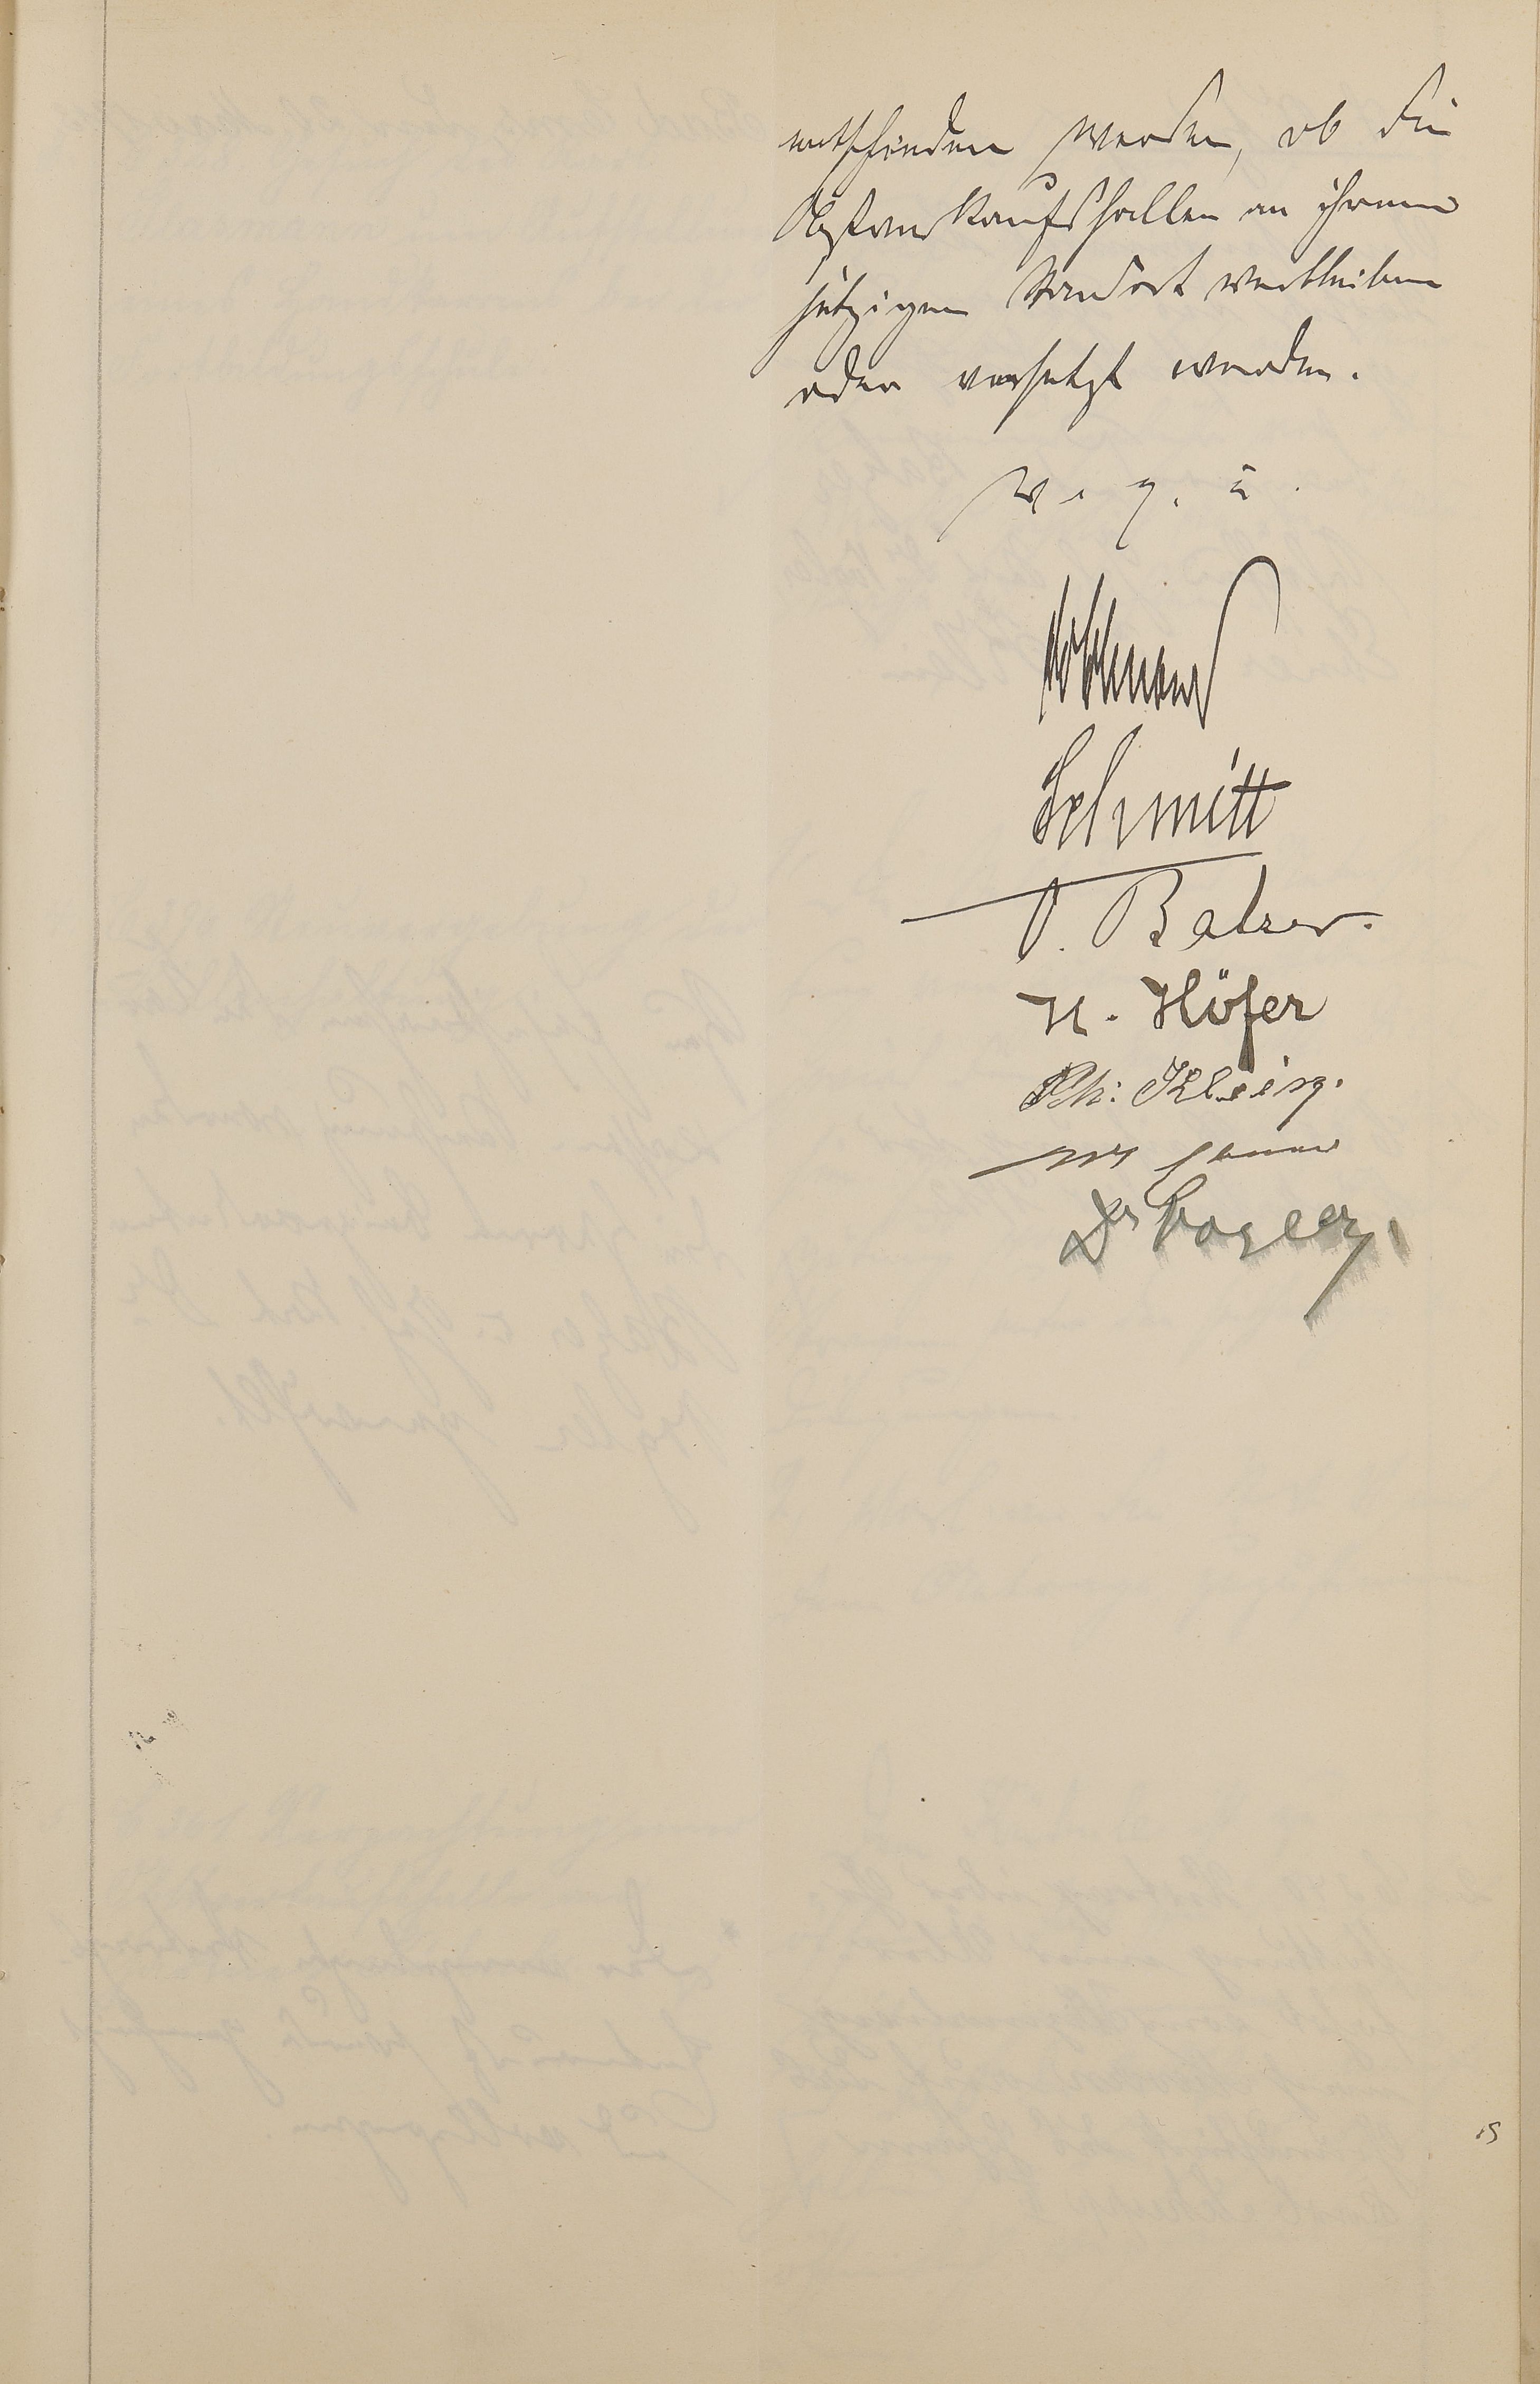 entschieden werden, ob die
Obstverkaufshallen an ihrem
jetzigen Standort verbleiben
oder versetzt werden.
v. g. u.
Schmitt
Balzer.
H. Höfer
Ph: Klein.
Dr Vogler,
15